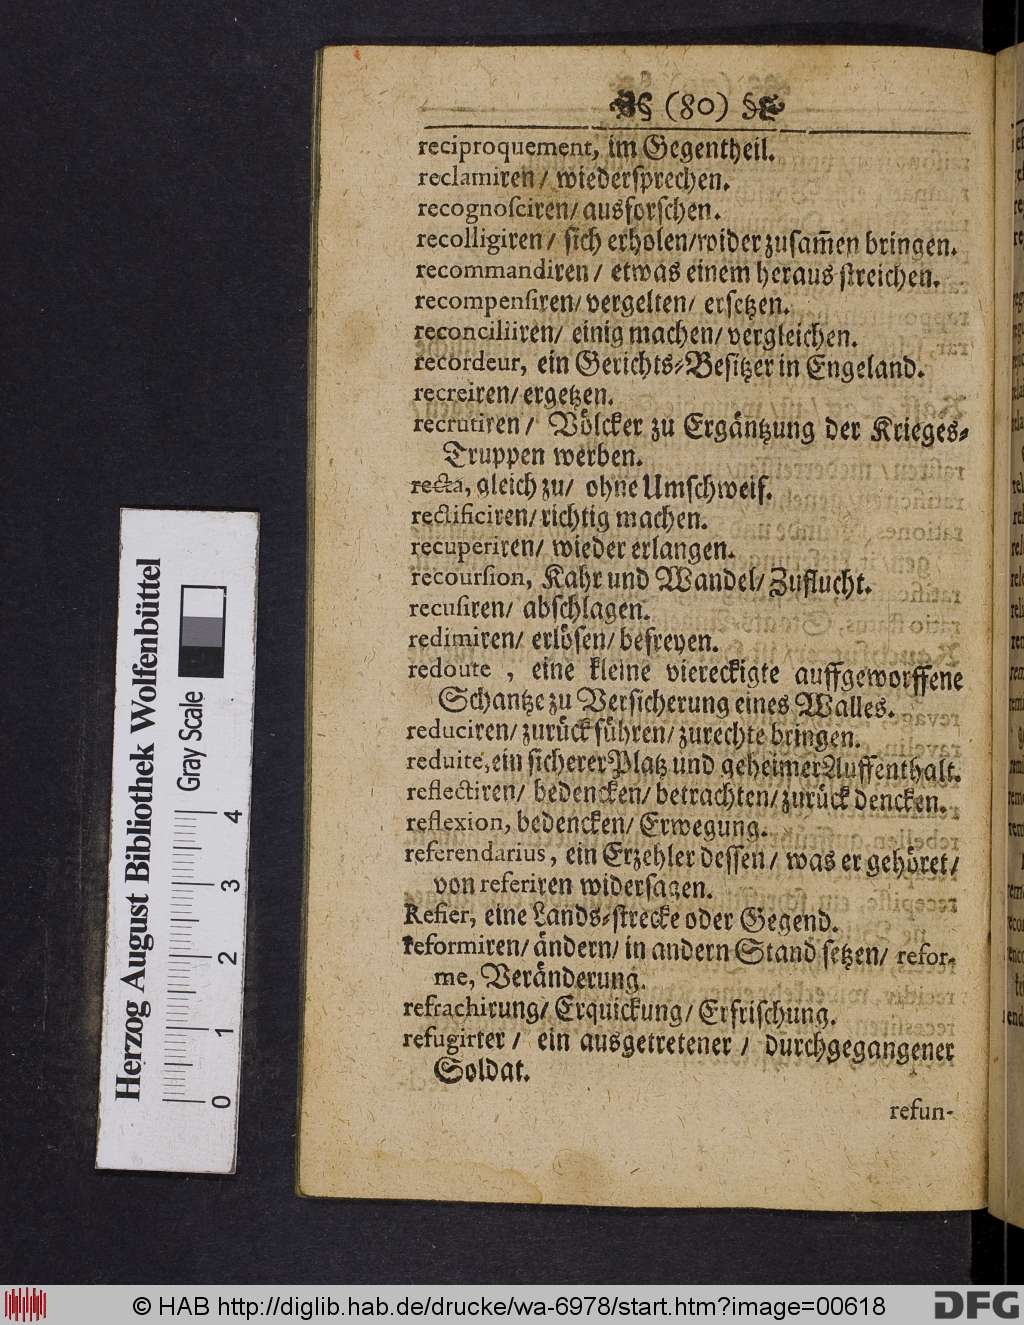 § (80) §
reciproquement, im Gegentheil.
reclamiren / wiedersprechen.
recognoſciren/ ausforſchen.
recolligiren / ſich erholen/wider zuſam̃en bringen.
recommandiren / etwas einem heraus ſtreichen.
recompenſiren/ vergelten/ erſetzen.
reconciliiren/ einig machen/ vergleichen.
recordeur, ein Gerichts-Beſitzer in Engeland.
recreiren/ ergetzen.
recrutiren / Völcker zu Ergäntzung der Krieges-
Truppen werben.
recta, gleich zu/ ohne Umſchweif.
rectificiren/ richtig machen.
recuperiren/ wieder erlangen.
recourſion, Kahr und Wandel/ Zuflucht.
recuſiren/ abſchlagen.
redimiren/ erlöſen/ befreyen.
redoute , eine kleine viereckigte auffgeworffene
Schantze zu Verſicherung eines Walles.
reduciren/ zurück führen/ zurechte bringen.
reduite, ein ſicherer Platz und geheimer Auffenthalt.
reflectiren/ bedencken/ betrachten/ zurück dencken.
reflexion, bedencken/ Erwegung.
referendarius, ein Erzehler deſſen / was er gehöret/
von referiren widerſagen.
Refier, eine Lands-ſtrecke oder Gegend.
reformiren/ ändern/ in andern Stand ſetzen/ refor-
me, Veränderung.
refrachirung/ Erquickung/ Erfriſchung.
refugirter / ein ausgetretener / durchgegangener
Soldat.
refun-
Herzog August Bibliothek Wolfenbüttel
Gray Scale
0 1 2 3 4
© HAB http://diglib.hab.de/drucke/wa-6978/start.htm?image=00618
DFG